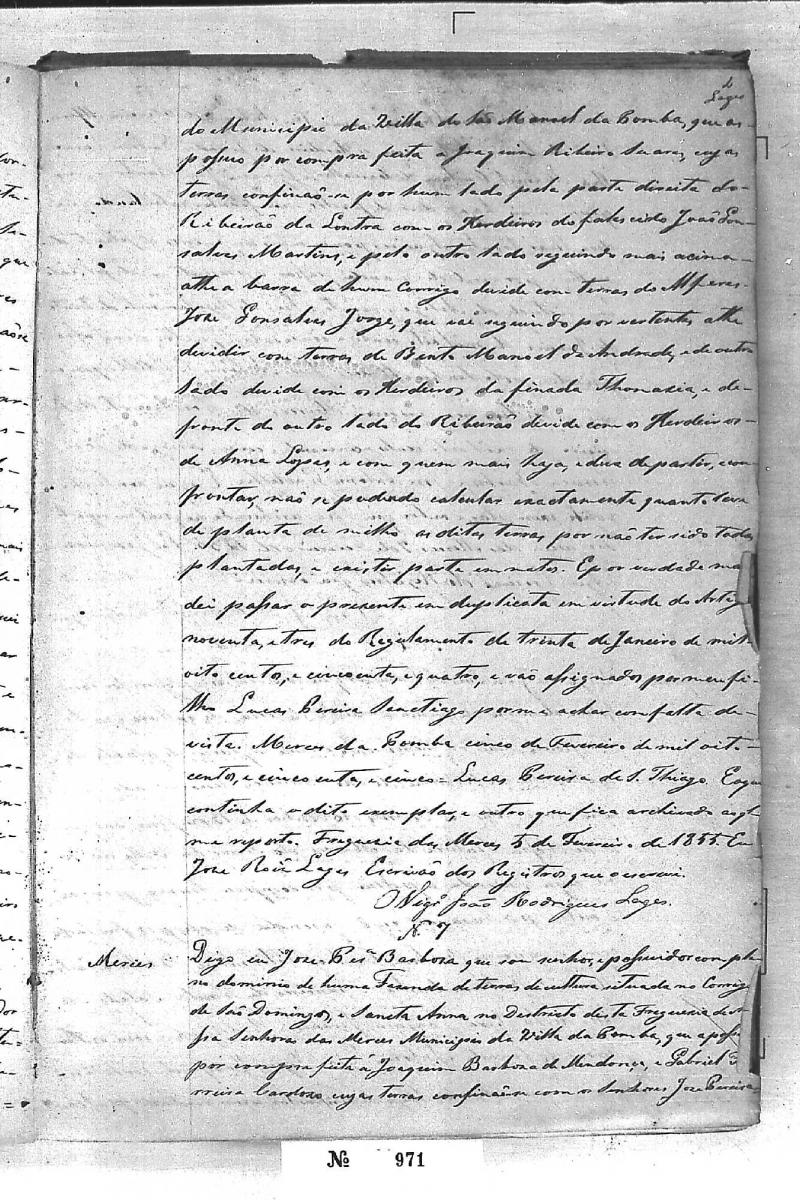 Lages
do Municipio da Villa de São Manoel da Pomba, que as
possuo por compra feita a Joaquim Ribeiro Soares, cujas
terras confinaõ-se por hum lado pela parte direita do
Ribeiraõ da Lontra com os Herdeiros do falescido Joaõ Gon-
salves Martins, e pelo outro lado seguindo mais acima
athe a barra de hum Corrigo devide com terras do Alferes
Joze Gonsalves Jorge, que vai seguindo por vertentes athe
devidir com terras de Bento Manoel de Andrade, e de outro
lado devide com os Herdeiros da finada Thomazia, e de-
fronte do outro lado do Ribeiraõ devide com os Herdeiros
de Anna Lopes, e com quem mais haja, e deva de partir, e con
frontar, naõ se podendo calcular exactamente quanto leva
de planta de milho as ditas terras por naõ ter sido todas
plantadas, e existir parte em matos. E por verdade man
dei passar o prezente em duplicata em virtude do Artigo
noventa, e tres do Regulamento de trinta de Janeiro de mil
oito centos, e cincoenta, e quatro, e vaõ assignados por meu fi-
lho Lucas Pereira Sanctiago por me achar com falta de
vista. Merces da Pomba cinco de Fevereiro de mil oito
centos, e cincoenta, e cinco = Lucas Pereira de S. Thiago. E o que
continha o dito exemplar, e outro que fica archivado ao q.
me reporto. Freguezia das Merces 5 de Fevereiro de 1855. Eu
Joze Roiz Lages Escrivaõ dos Registros que o escrevi.
O Vigr.º Joaõ Rodrigues Lages.
N. 7
Merces
Digo eu Joze Barboza que sou senhor, e possuidor com ple
no dominio de huma Fazenda de terras de cultura situada no Corrigo
de Saõ Domingos, e Sancta Anna no Districto desta Freguezia de N
ssa Senhora das Merces Municipio da Villa da Pomba, que a possuo
por compra feita á Joaquim Barboza de Mendonça, e Gabriel F
rreira Cardozo cujas terras confinaõ-se com os Senhores Joze Pereira
Nº 971